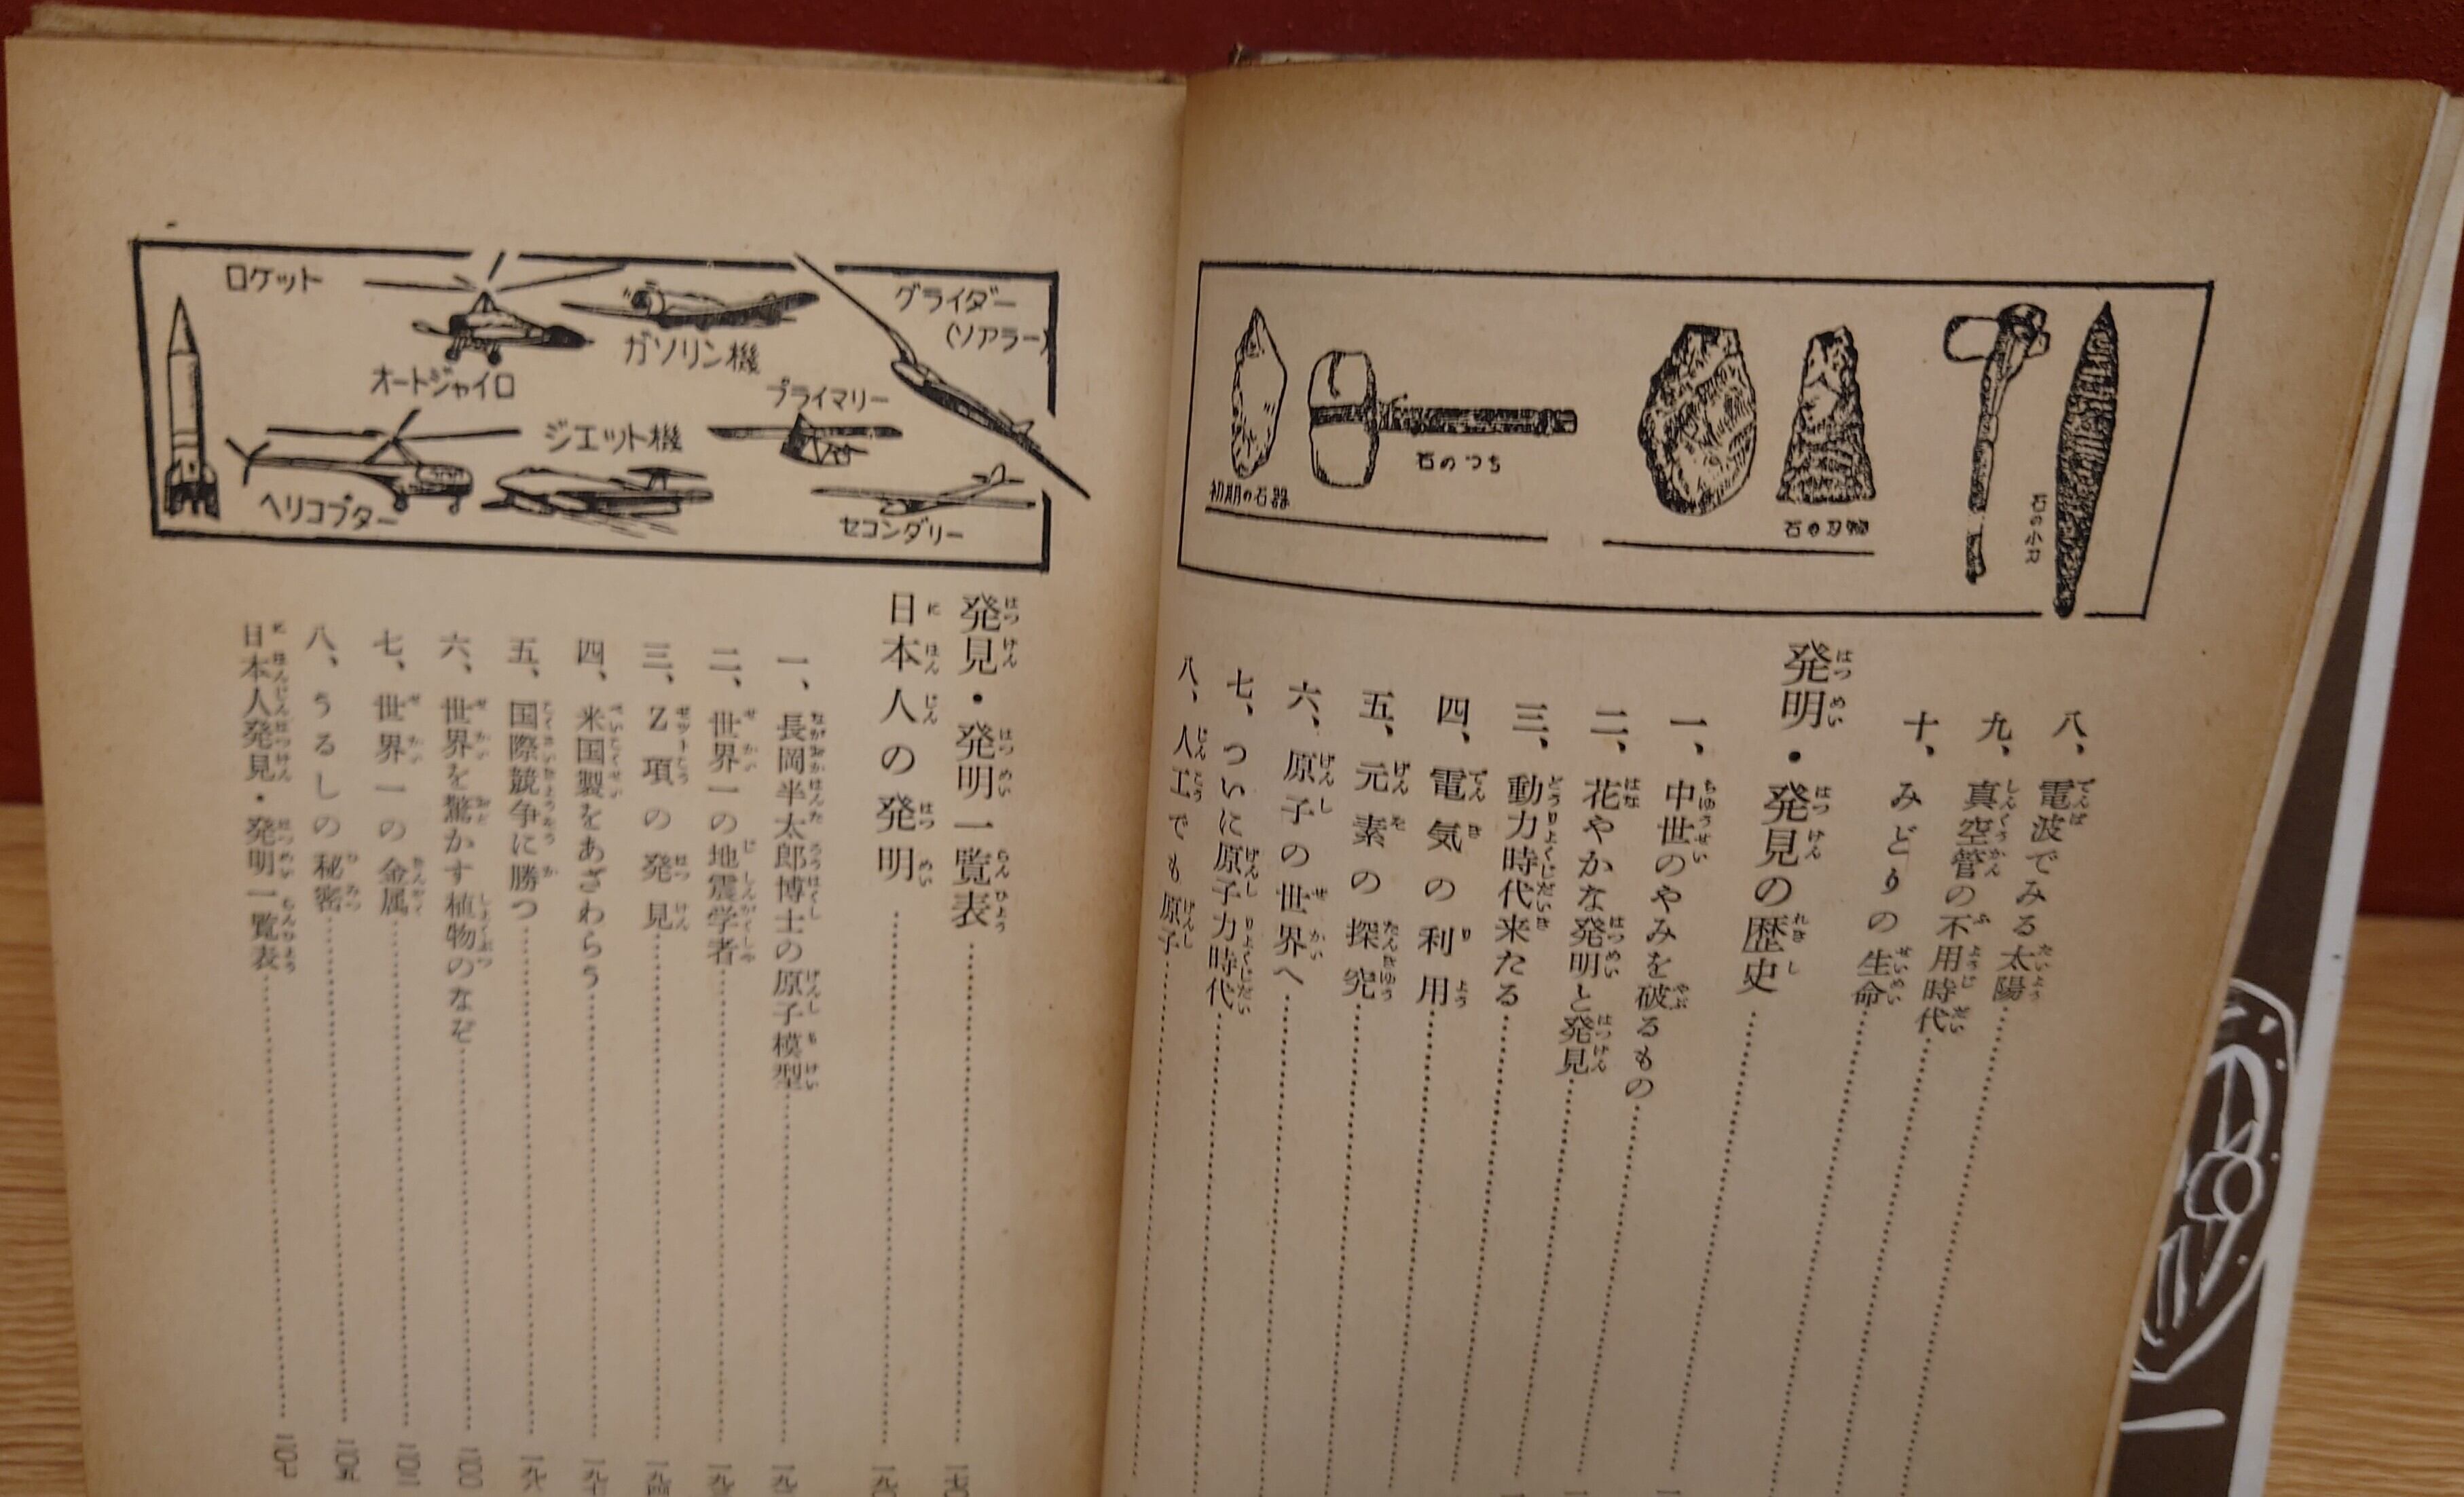 石の小刀
石の刃物
石のつち
初期の石器
八、電波でみる太陽
九、真空管の不用時代
十、みどりの生命
発明・発見の歴史
一、中世のやみを破るもの
二、花やかな発明と発見
三、動力時代来たる
四、電気の利用
五、元素の探究
六、原子の世界へ
七、ついに原子力時代
八、人工でも原子
グライダー
(ソアラー)
ガソリン機
ロケット
オートジャイロ
プライマリー
ジエット機
ヘリコプター
セコンダリー
発見・発明一覧表
日本人の発明
一、長岡半太郎博士の原子模型
二、世界一の地震学者
三、Z項の発見
四、米国製をあざわらう
五、国際競争に勝つ
六、世界を驚かす植物のなぞ 二〇〇
七、世界一の金属
八、うるしの秘密 二〇五
日本人発見・発明一覧表 二〇七